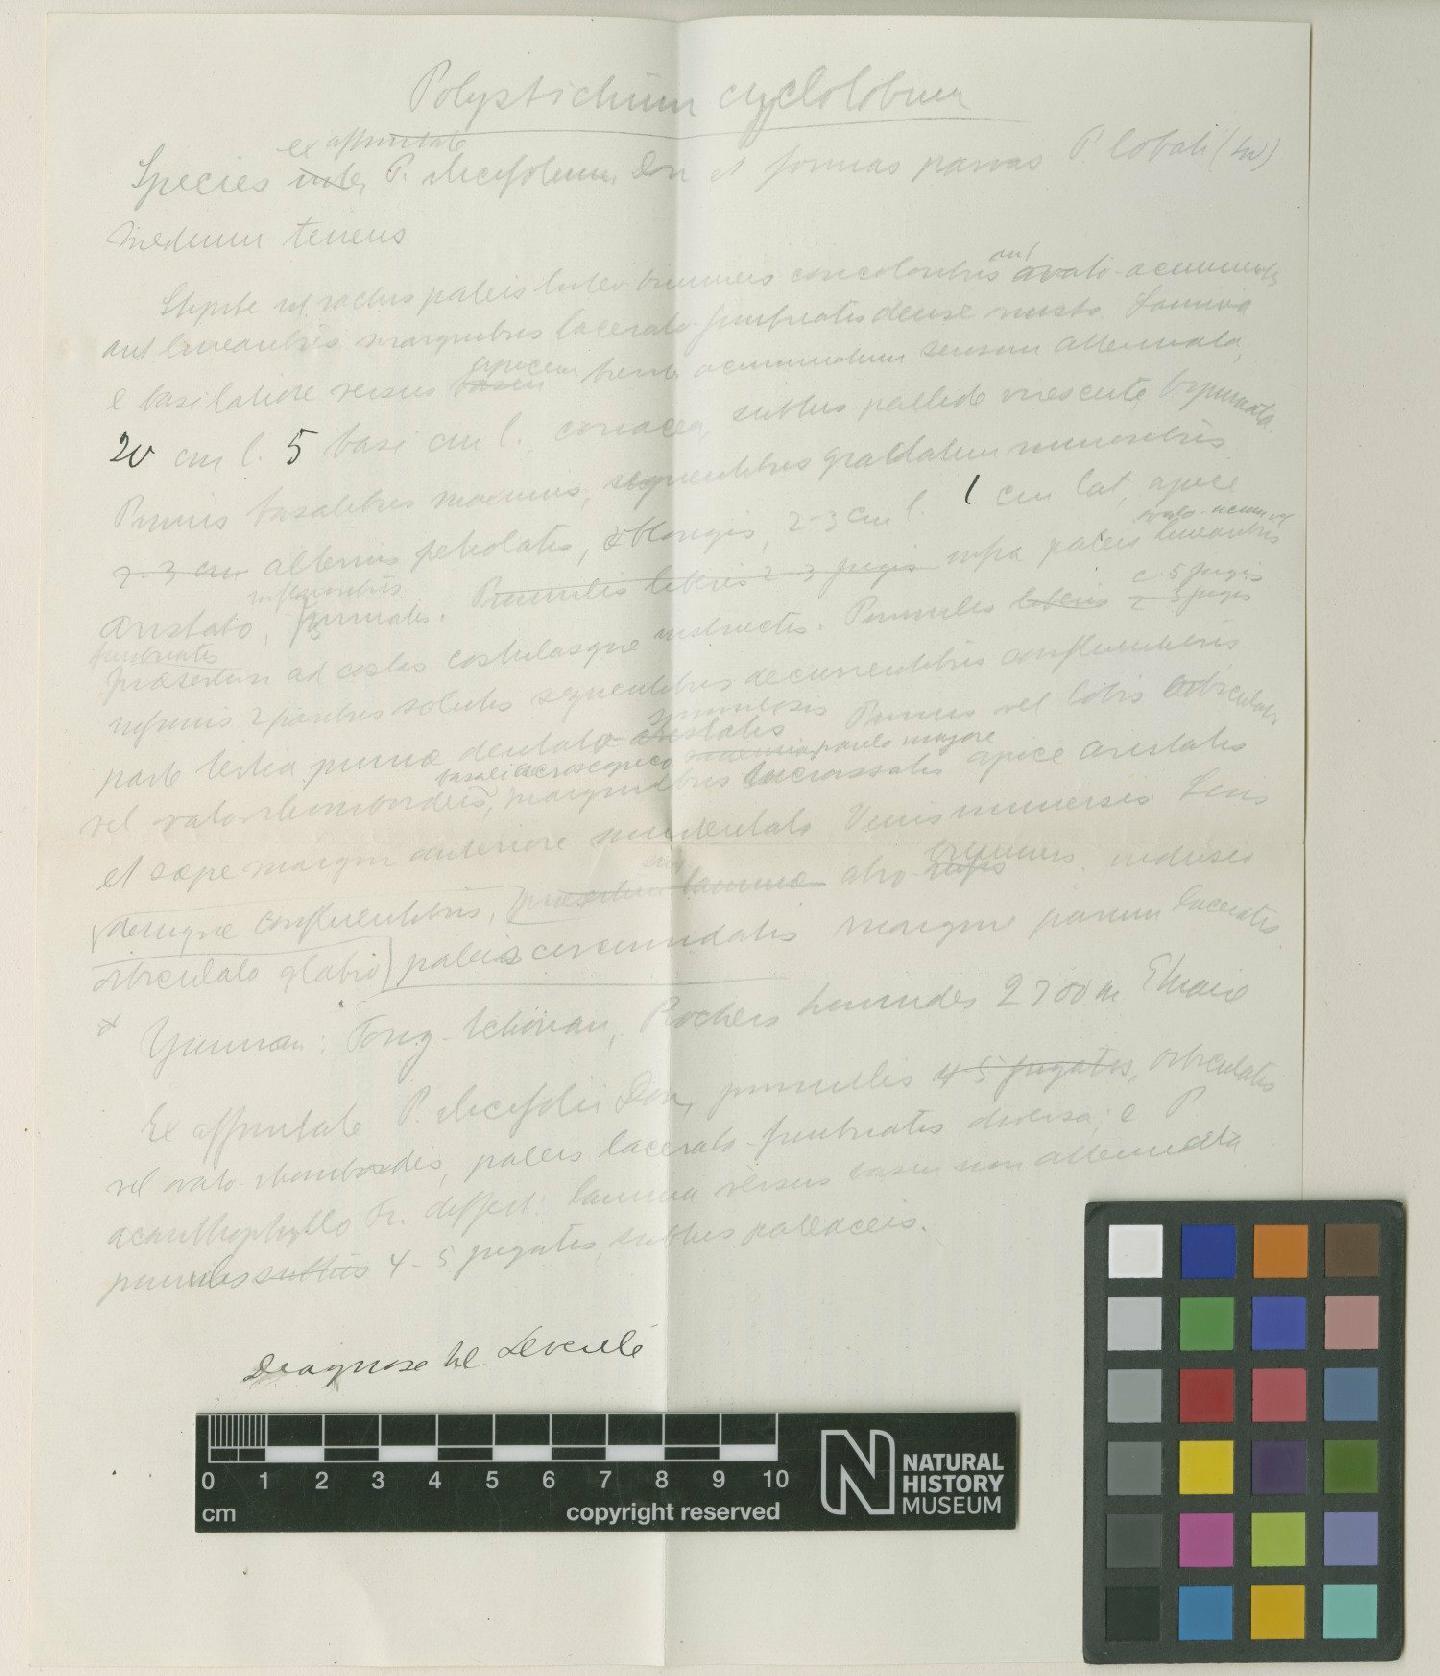 Polystichum cyclolobum
ex affinitate
Species inter P. ilicifolium Don et formas parvas P. lobati (Sw)
medium tenens
Stipite ut rachis paleis luteo brunneis concoloribus aut ovato-acuminatis
aut linearibus marginibus lacerato fimbriatis dense vestito. Lamina
e basi latiore versus basin apicem acuminatum sensim attenuata,
20 cm l. 5 basi cm l. coriacea, subtus pallide virescente bipinnata.
Pinnis basalibus maximis, sequentibus gradatim minoribus
2-3 cm alternis petiolatis, oblongis, 2-3 cm l. 1 cm lat, apice
ovato-acum vel
inferioribus
aristato, pinnatis. Pinnulis liberis 2-3 jugis infra paleis linearibus
fimbriatis
c. 5 jugis
praesertim ad costas costulasque instructis. Pinnulis liberis 2-3 jugis
infimis 2 paribus solutis sequentibus decurrentibus confluentibus
spinulosis
parte tertia pinnae dentato-aristatis Pinnis vel lobis orbiculatis
basali acroscopico paulo majore
vel ovato rhomboideis, marginibus incrassatis apice aristatis
et saepe margine anteriore Venis immersis Soris
brunneis
denique confluentibus, praesertim laminae atro-rufis indusio
orbiculato glabro paleis circumdatis margine parum laceratis
Yunnan: Tong-tchouan, Rochers humides 2700 m Maire
Ex affinitate P. ilicifolii Don, pinnulis 4-5 jugatis, orbiculatis
vel ovato-rhomboideis, paleis lacerato-fimbriatis diversa; e P.
acanthophyllo Fr. differt: lamina versus basin non attenuata
pinnulis subtus 4-5 jugatis, subtus paleaceis.
Diagnose
0 1 2 3 4 5 6 7 8 9 10
cm copyright reserved
NATURAL
HISTORY
MUSEUM